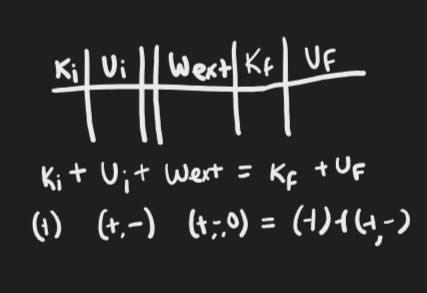 Ki | Ui || Wext | Kf | UF
Ki + Ui + Wext = KF + UF
(+) (+,-) (+,-,0) = (+) + (+,-)